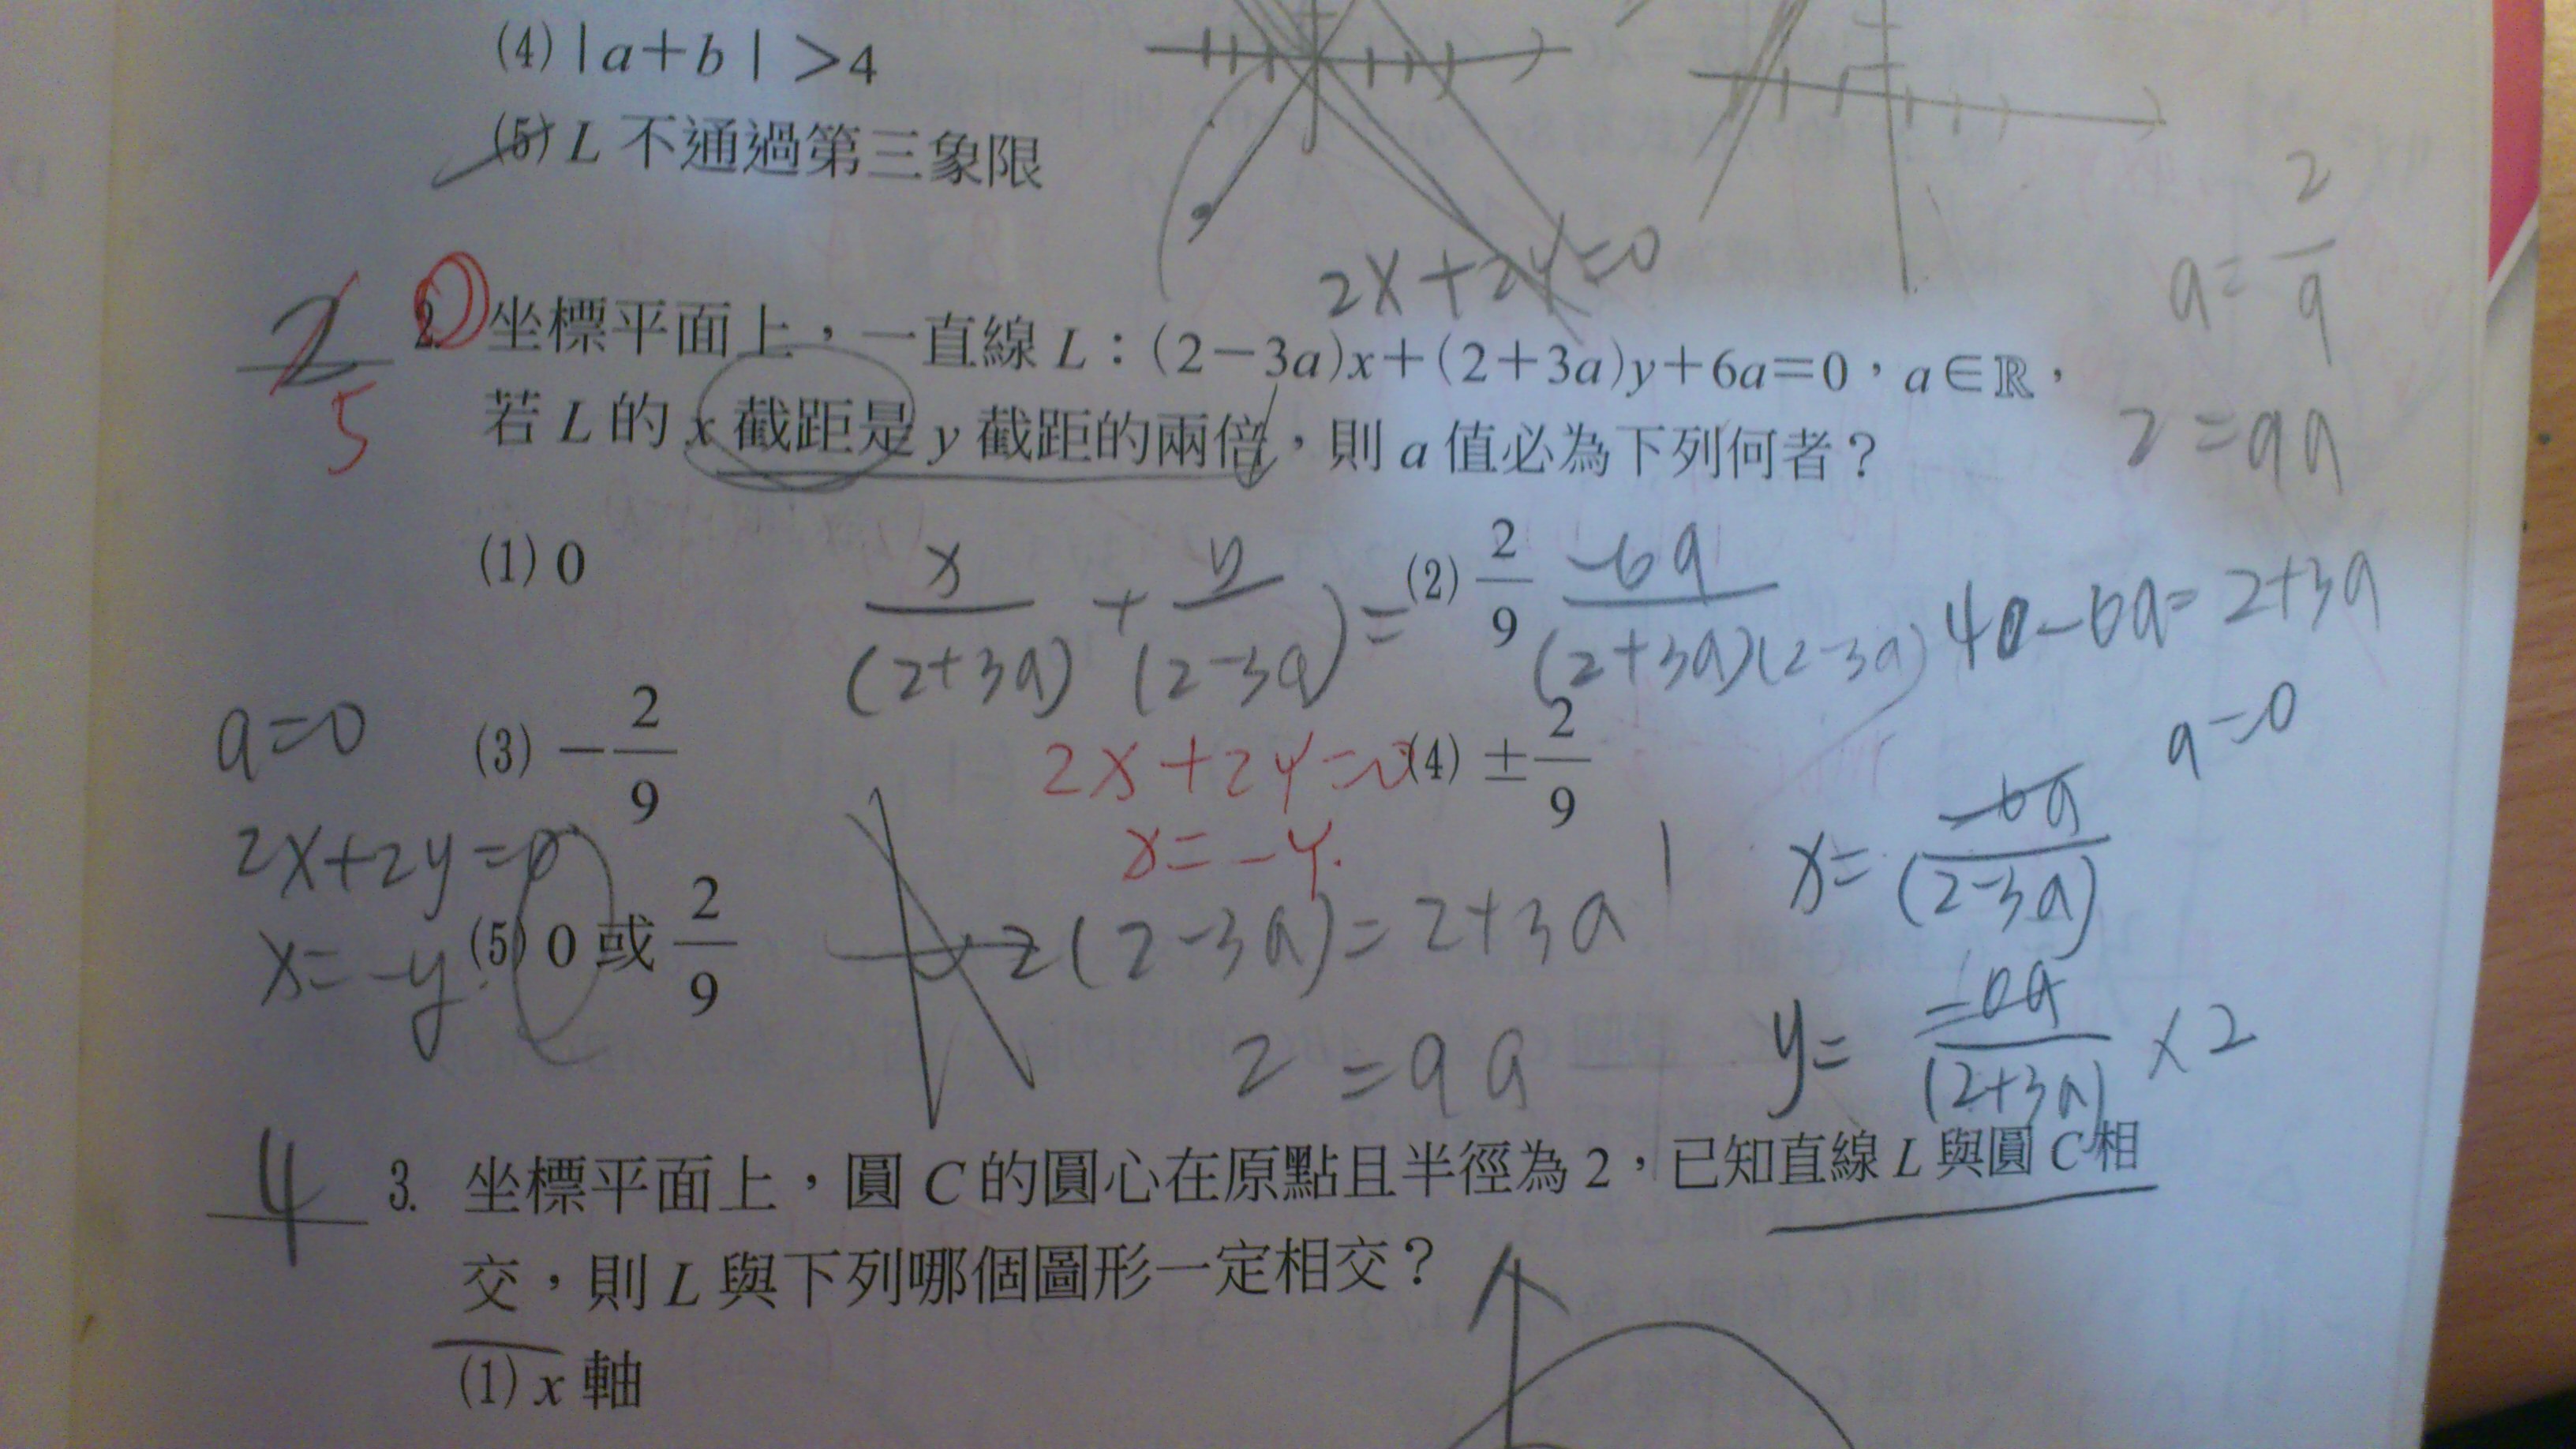 (4)|a+b|>4
(5)L不通過第三象限
2x+2y=0
a=2/9
2=9a
2
5
2. 坐標平面上，一直線L：(2-3a)x+(2+3a)y+6a=0，a∈ℝ，
若L的x截距是y截距的兩倍，則a值必為下列何者？
(1)0
(2)2/9
x/(2+3a)+y/(2-3a)=-6a/(2+3a)(2-3a)
4-6a=2+3a
a=0
(3)-2/9
(4)±2/9
a=0
2x+2y=0
x=-y
2x+2y=0
x=-y.
x=-6a/(2-3a)
(5)0或2/9
2(2-3a)=2+3a
2=9a
y=-6a/(2+3a)×2
4
3. 坐標平面上，圓C的圓心在原點且半徑為2，已知直線L與圓C相
交，則L與下列哪個圖形一定相交？
(1)x軸